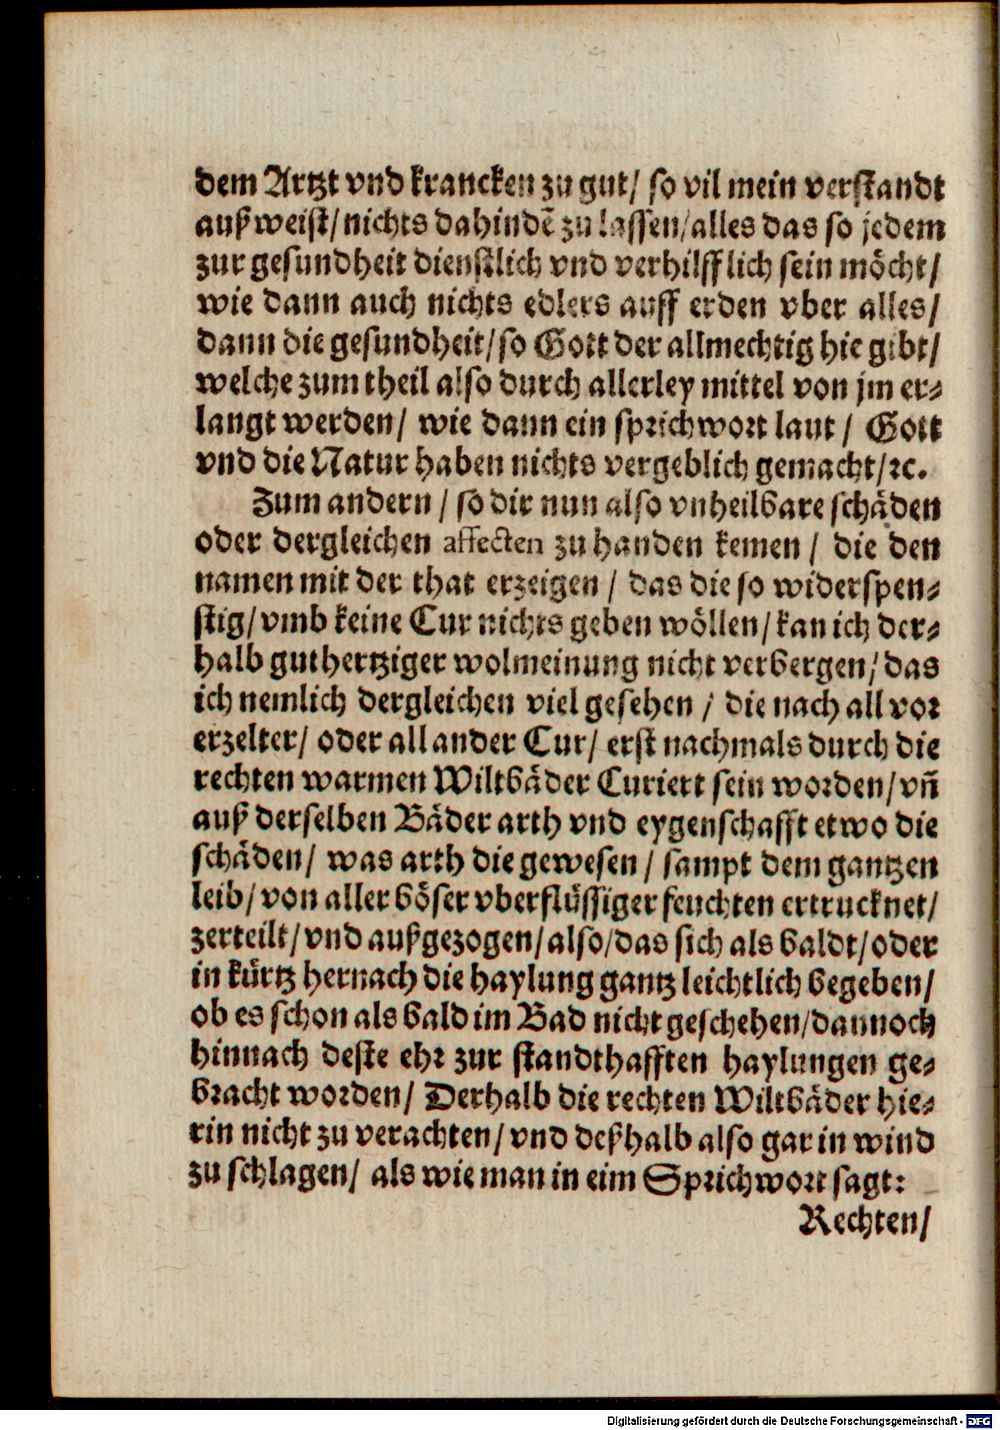 dem Artzt vnd krancken zu gut/ so vil mein verstandt
außweist/ nichts dahindẽ zu lassen/ alles das so jedem
zur gesundheit dienstlich vnd verhilfflich sein möcht/
wie dann auch nichts edlers auff erden vber alles/
dann die gesundheit/ so Gott der allmechtig hie gibt/
welche zum theil also durch allerley mittel von jm er⸗
langt werden/ wie dann ein sprichwort laut / Gott
vnd die Natur haben nichts vergeblich gemacht/ ꝛc.
Zum andern / so dir nun also vnheilbare schäden
oder dergleichen affecten zu handen kemen / die den
namen mit der that erzeigen / das die so widerspen⸗
stig/ vmb keine Cur nichts geben wöllen/ kan ich der⸗
halb guthertziger wolmeinung nicht verbergen/ das
ich nemlich dergleichen viel gesehen / die nach all vor
erzelter/ oder all ander Cur/ erst nachmals durch die
rechten warmen Wiltbäder Curiert sein worden/ vñ
auß derselben Bäder arth vnd eygenschafft etwo die
schäden/ was arth die gewesen / sampt dem gantzen
leib/ von aller böser vberflüssiger feuchten ertrucknet/
zerteilt/ vnd außgezogen/ also/ das sich als baldt/ oder
in kürtz hernach die haylung gantz leichtlich begeben/
ob es schon als bald im Bad nicht geschehen/ dannoch
hinnach deste ehr zur standthafften haylungen ge⸗
bracht worden/ Derhalb die rechten Wiltbäder hie⸗
rin nicht zu verachten/ vnd deßhalb also gar in wind
zu schlagen/ als wie man in eim Sprichwort sagt:
Rechten/
Digitalisierung gefördert durch die Deutsche Forschungsgemeinschaft - DFG